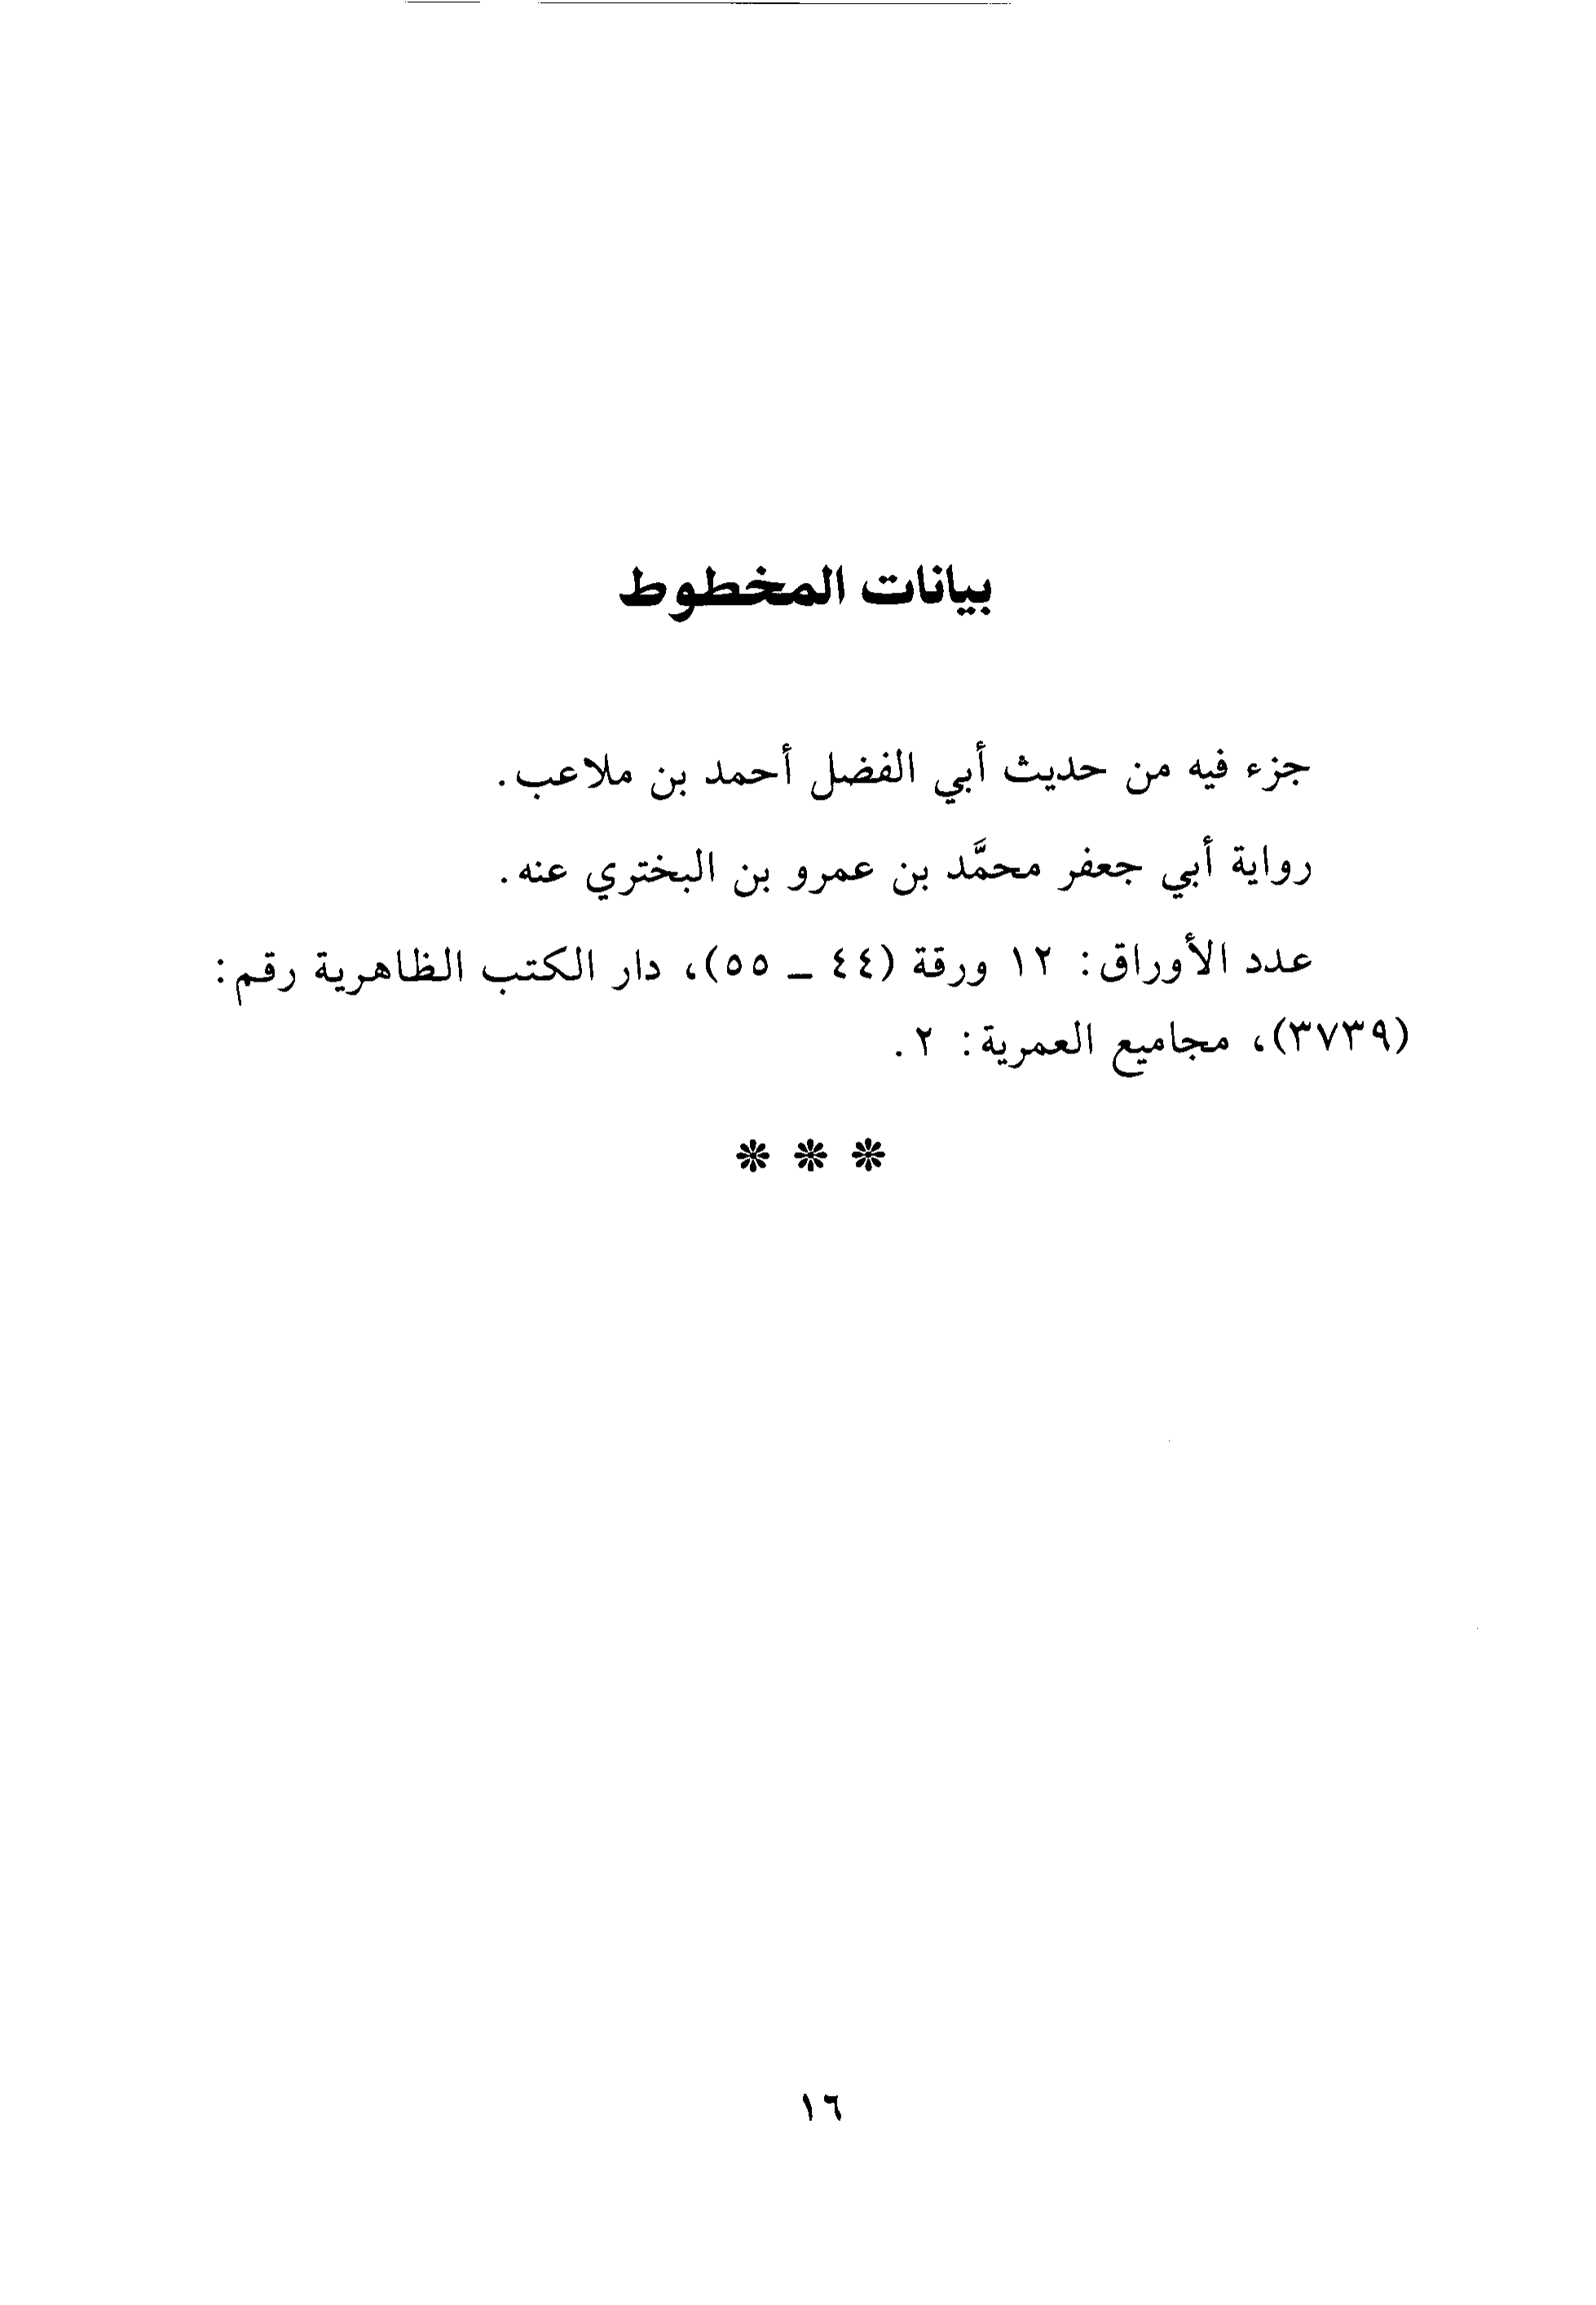 بيانات المخطوط
جزء فيه من حديث أبي الفضل أحمد بن ملاعب.
رواية أبي جعفر محمَّد بن عمرو بن البختري عنه.
عدد الأوراق: ١٢ ورقة (٤٤ ـ ٥٥)، دار الكتب الظاهرية رقم:
(٣٧٣٩)، مجاميع العمرية: ٢.
* * *
١٦